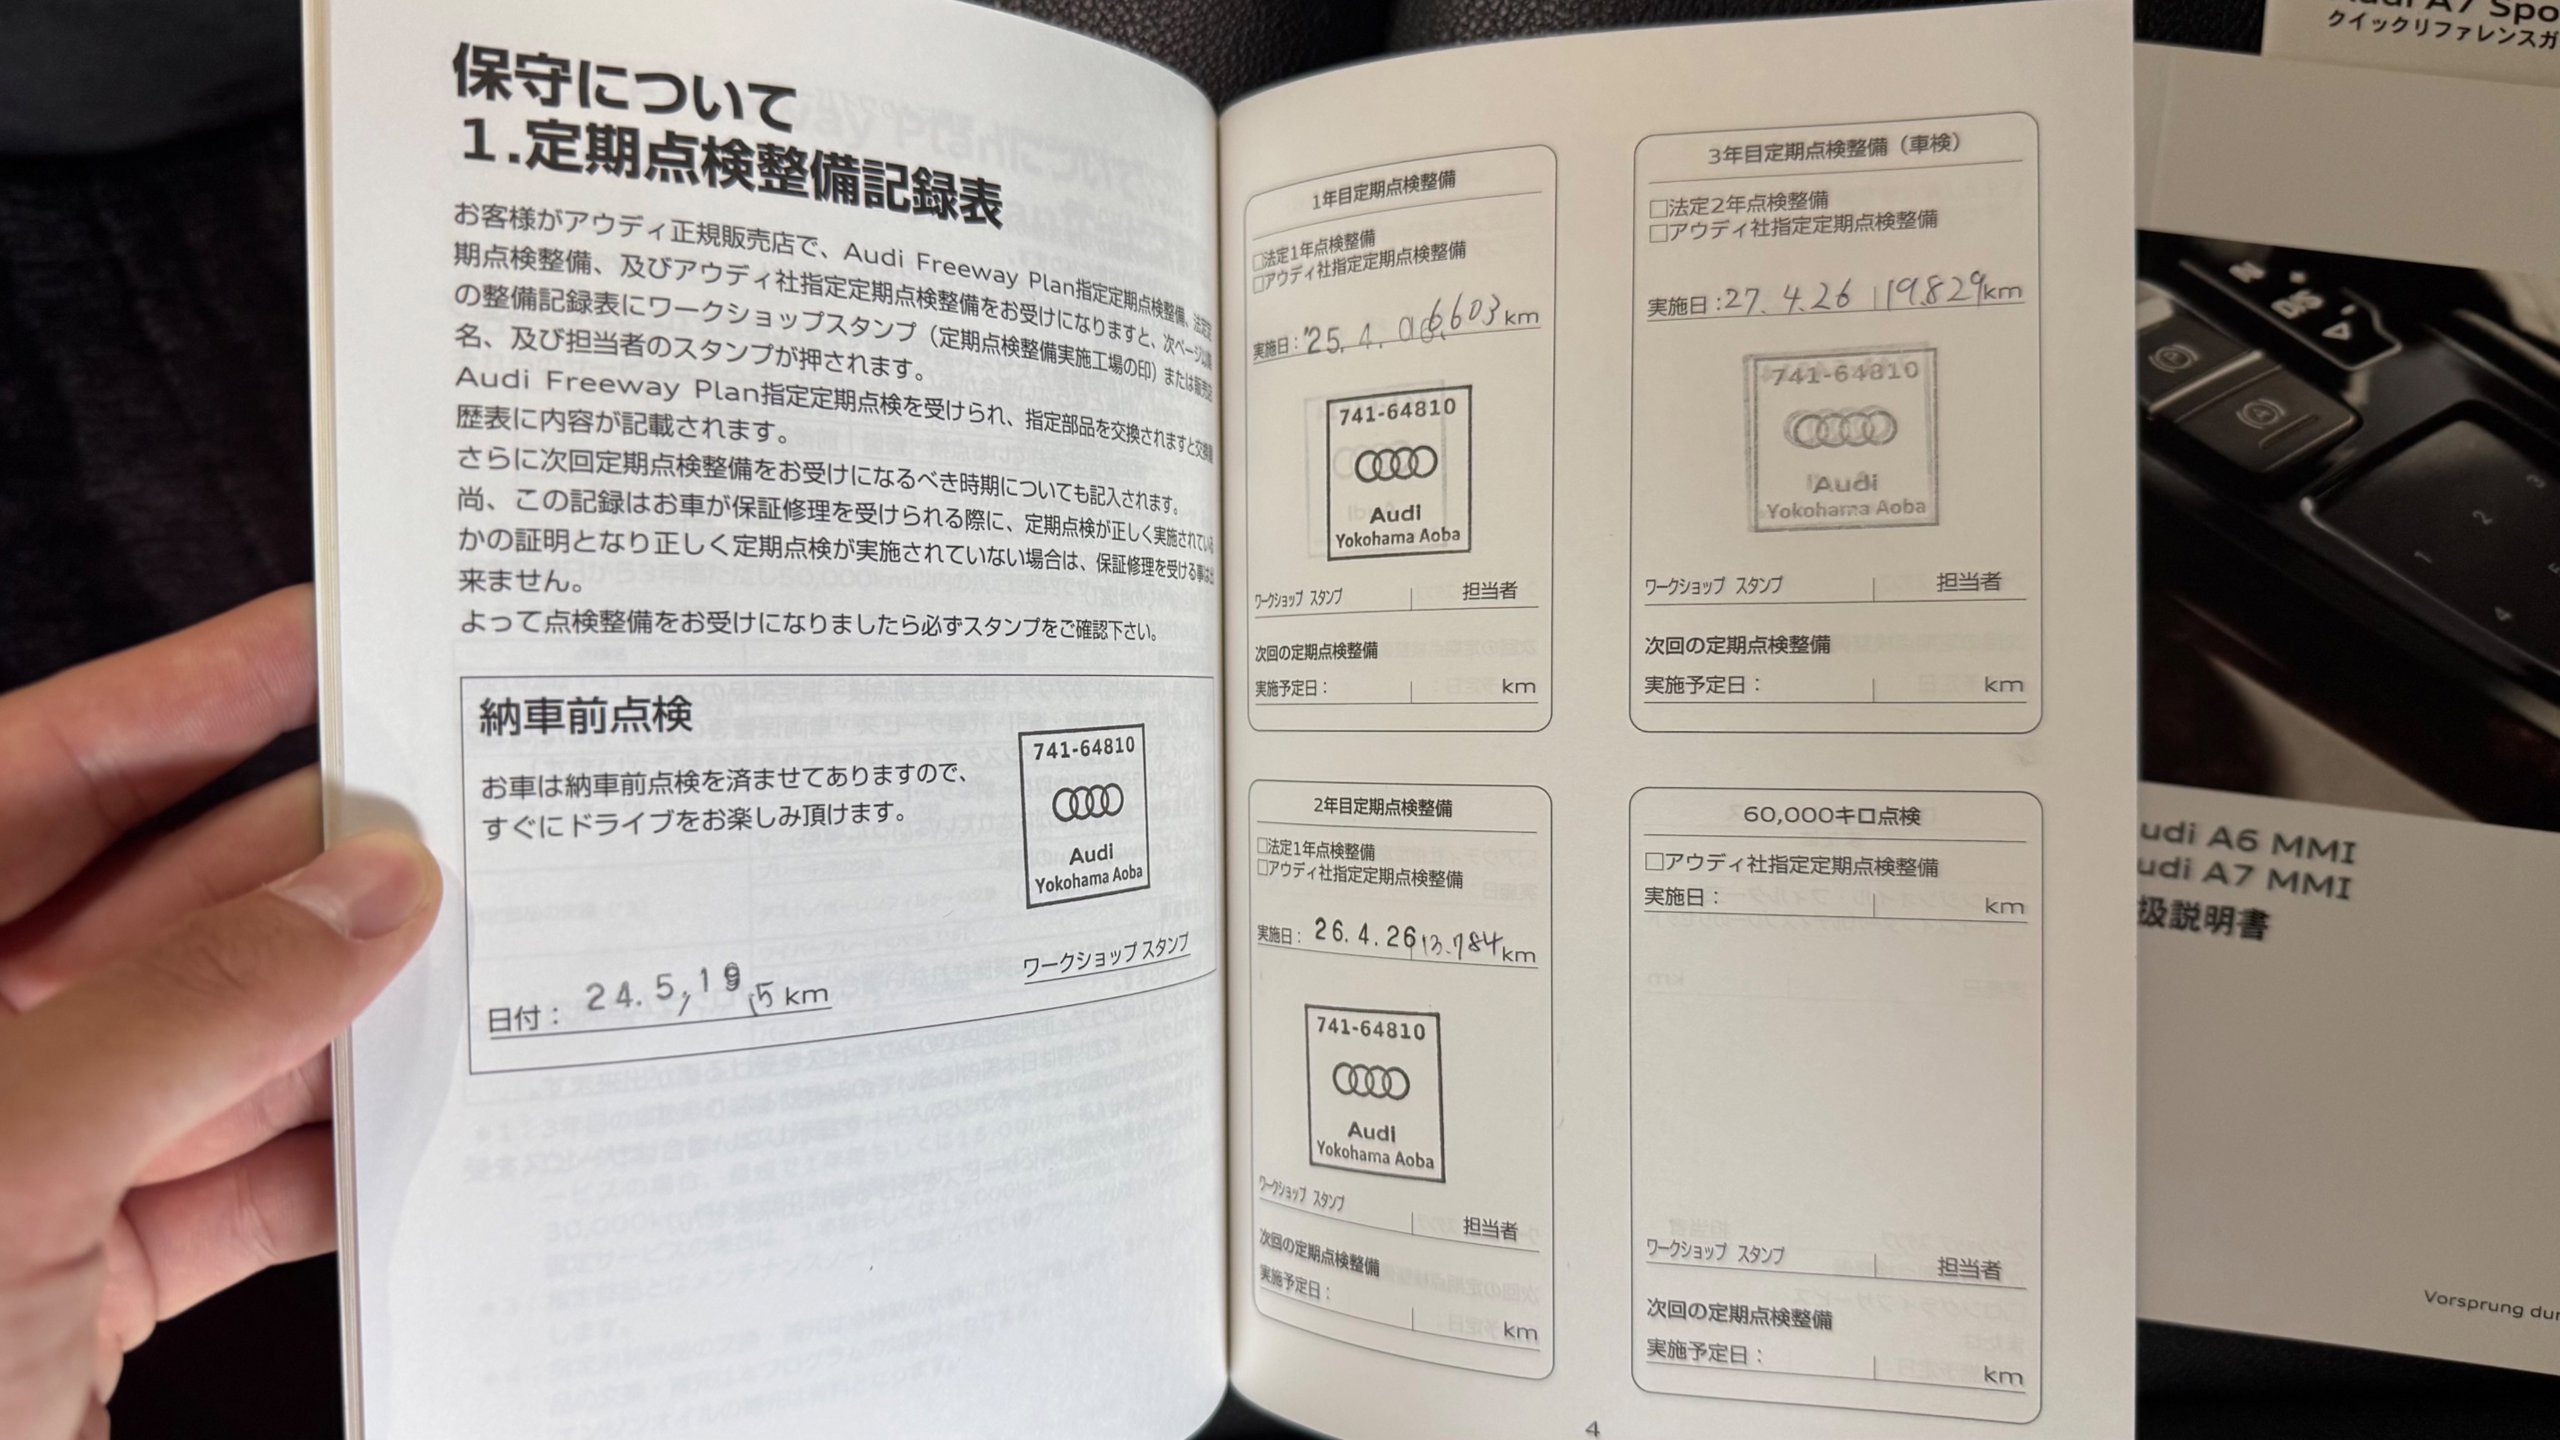 保守について
1.定期点検整備記録表
お客様がアウディ正規販売店で、Audi Freeway Plan指定定期点検整備、法定定
期点検整備、及びアウディ社指定定期点検整備をお受けになりますと、次ページ以降
の整備記録表にワークショップスタンプ（定期点検整備実施工場の印）または販売店
名、及び担当者のスタンプが押されます。
Audi Freeway Plan指定定期点検を受けられ、指定部品を交換されますと交換履
歴表に内容が記載されます。
さらに次回定期点検整備をお受けになるべき時期についても記入されます。
尚、この記録はお車が保証修理を受けられる際に、定期点検が正しく実施されている
かの証明となり正しく定期点検が実施されていない場合は、保証修理を受ける事は出
来ません。
よって点検整備をお受けになりましたら必ずスタンプをご確認下さい。
納車前点検
お車は納車前点検を済ませてありますので、
すぐにドライブをお楽しみ頂けます。
741-64810
Audi
Yokohama Aoba
ワークショップ スタンプ
日付： 24.5,19 5 km
1年目定期点検整備
□法定1年点検整備
□アウディ社指定定期点検整備
実施日：'25. 4. 6.603 km
741-64810
Audi
Yokohama Aoba
ワークショップ スタンプ 担当者
次回の定期点検整備
実施予定日： km
2年目定期点検整備
□法定1年点検整備
□アウディ社指定定期点検整備
実施日： 26.4.26 13.784 km
741-64810
Audi
Yokohama Aoba
ワークショップ スタンプ 担当者
次回の定期点検整備
実施予定日： km
3年目定期点検整備（車検）
□法定2年点検整備
□アウディ社指定定期点検整備
実施日：27.4.26 19.829 km
741-64810
Audi
Yokohama Aoba
ワークショップ スタンプ 担当者
次回の定期点検整備
実施予定日： km
60,000キロ点検
□アウディ社指定定期点検整備
実施日： km
ワークショップ スタンプ 担当者
次回の定期点検整備
実施予定日： km
4
A7 Spo
クイックリファレンスガ
udi A6 MMI
udi A7 MMI
扱説明書
Vorsprung dur